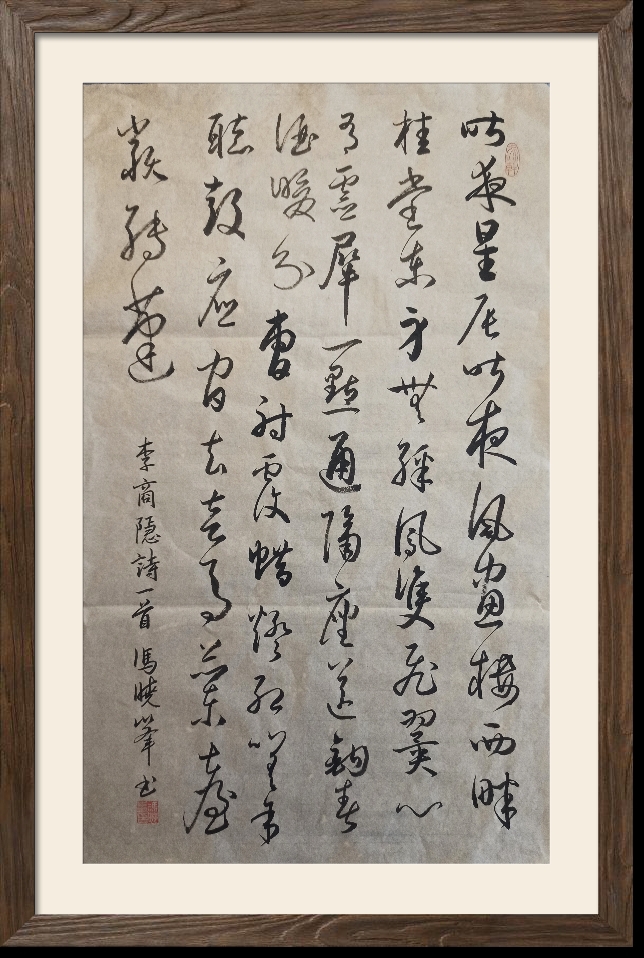 昨夜星辰昨夜風畫樓西畔
桂堂東身無綵鳳雙飛翼心
有靈犀一點通隔座送鉤春
酒暖分曹射覆蠟燈紅嗟余
聽鼓應官去走馬蘭臺
類轉蓬
李商隱詩一首 馮曉峯书